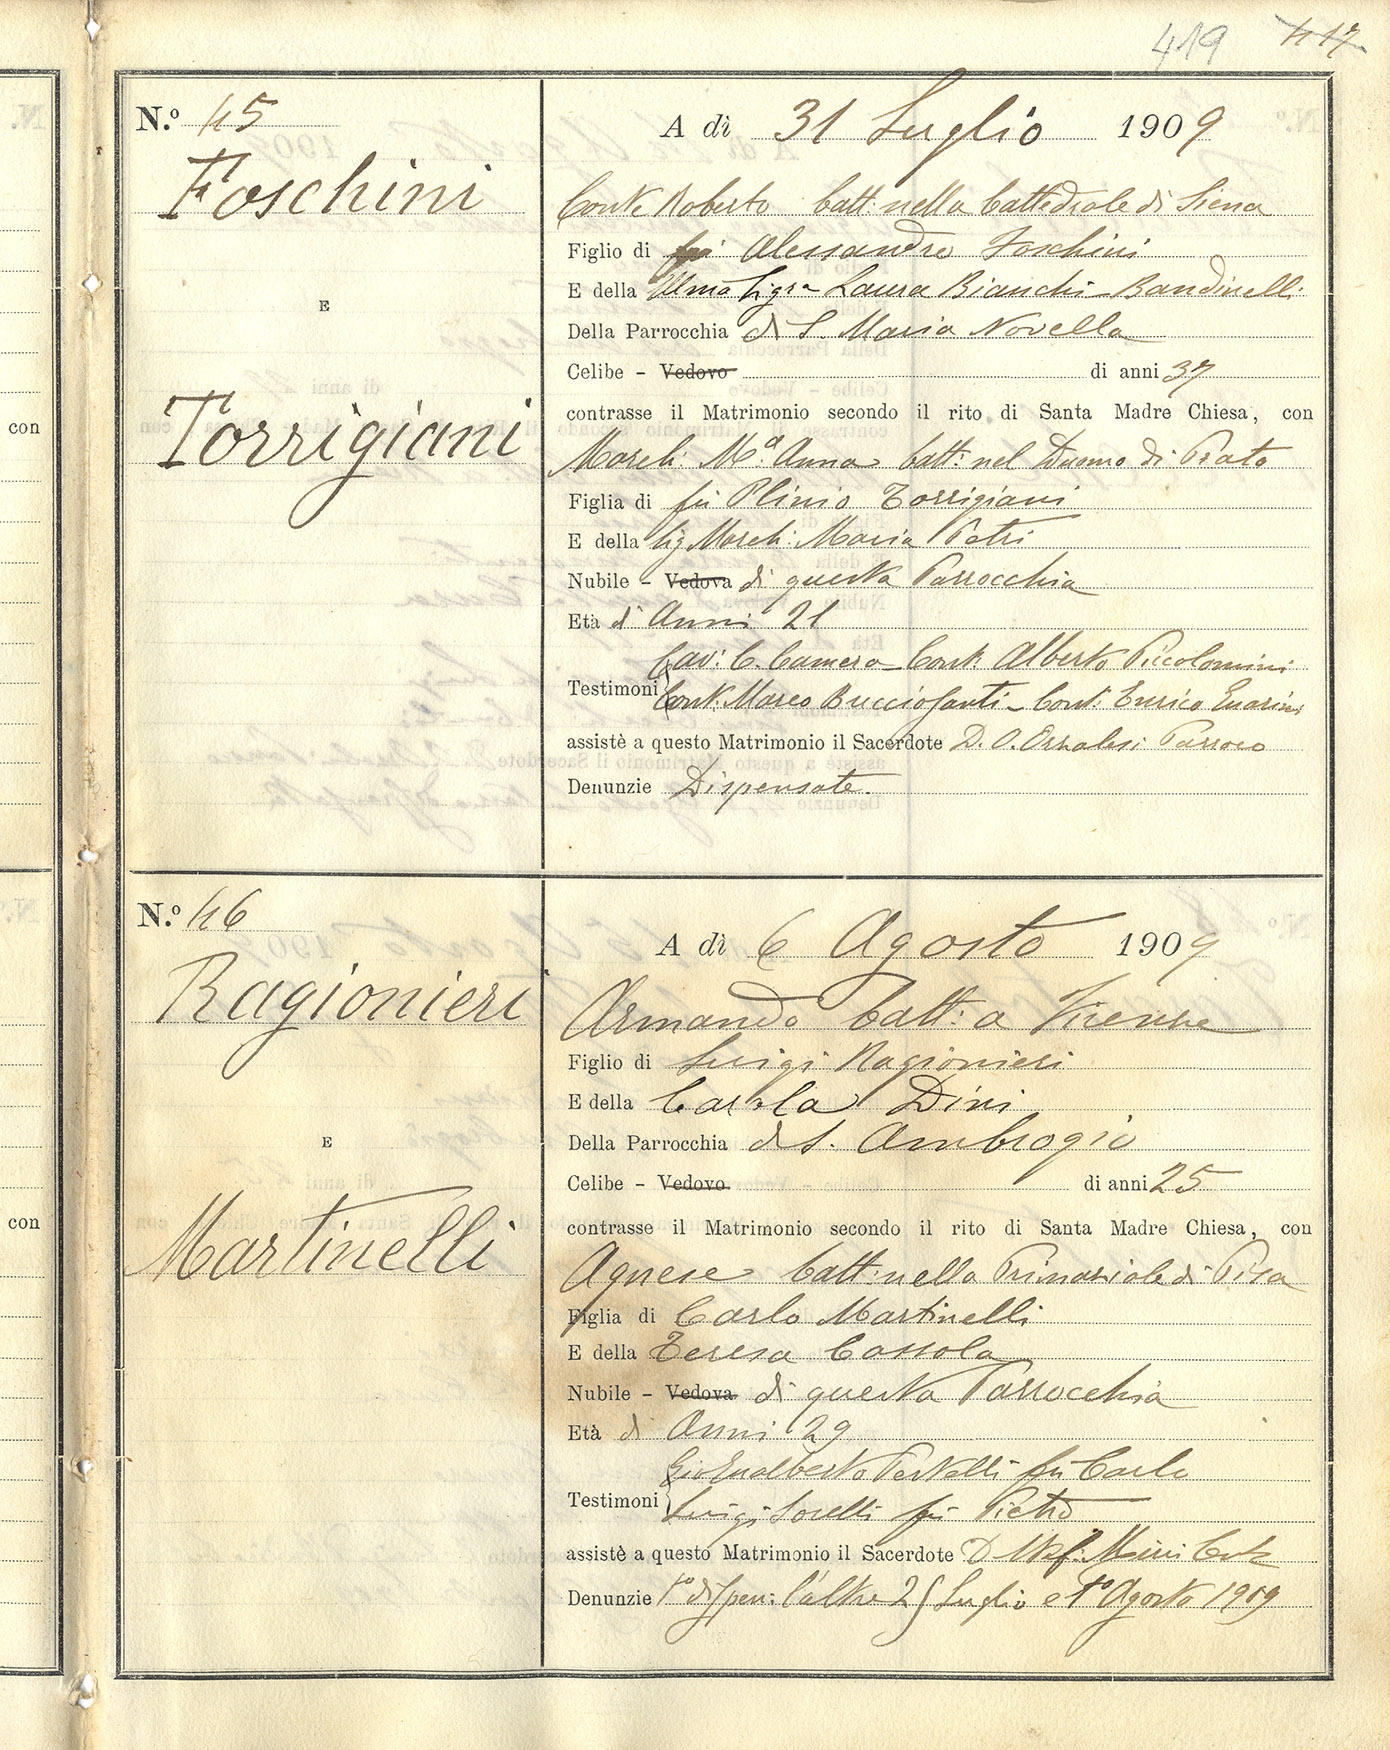 419 417
con
con
N.º 45
Foschini
E
Torrigiani
A dì 31 Luglio 1909
Conte Roberto batt: nella Cattedrale di Siena
Figlio di Alessandro Foschini
E della Illma Sigra Laura Bianchi-Bandinelli
Della Parrocchia di S. Maria Novella
Celibe - Vedovo di anni 37
contrasse il Matrimonio secondo il rito di Santa Madre Chiesa, con
March: Mª. Anna batt: nel Duomo di Prato
Figlia di fu Plinio Torrigiani
E della Sig March: Maria Petri
Nubile - Vedova di questa Parrocchia
Età di Anni 21
Cav: C. Camera - Cont: Alberto Piccolomini
Testimoni Cont: Marco - Cont: Enrico
assistè a questo Matrimonio il Sacerdote D. O. Parroco
Denunzie Dispensate.
N.º 46
Ragionieri
E
Martinelli
A dì 6 Agosto 1909
Armando batt: a Firenze
Figlio di Luigi Ragionieri
E della Carola Dini
Della Parrocchia di S. Ambrogio
Celibe - Vedovo di anni 25
contrasse il Matrimonio secondo il rito di Santa Madre Chiesa, con
Agnese batt: nella Primaziale di Pisa
Figlia di Carlo Martinelli
E della Teresa Cassola
Nubile - Vedova di questa Parrocchia
Età di Anni 29
fu Carlo
Testimoni Luigi Sorelli fu Pietro
assistè a questo Matrimonio il Sacerdote D
Denunzie 1º dispen: l'altre 25 Luglio e 1º Agosto 1909